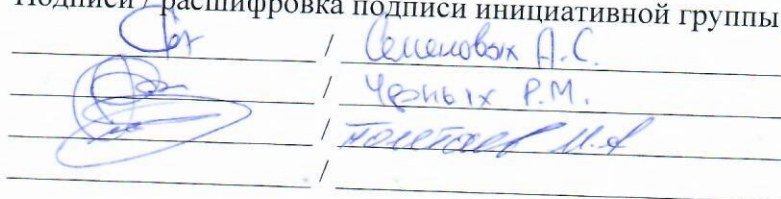 Подписи / расшифровка подписи инициативной группы
/ Семеновых А.С.
/ Черных Р.М.
/ Полетаев И.А
/